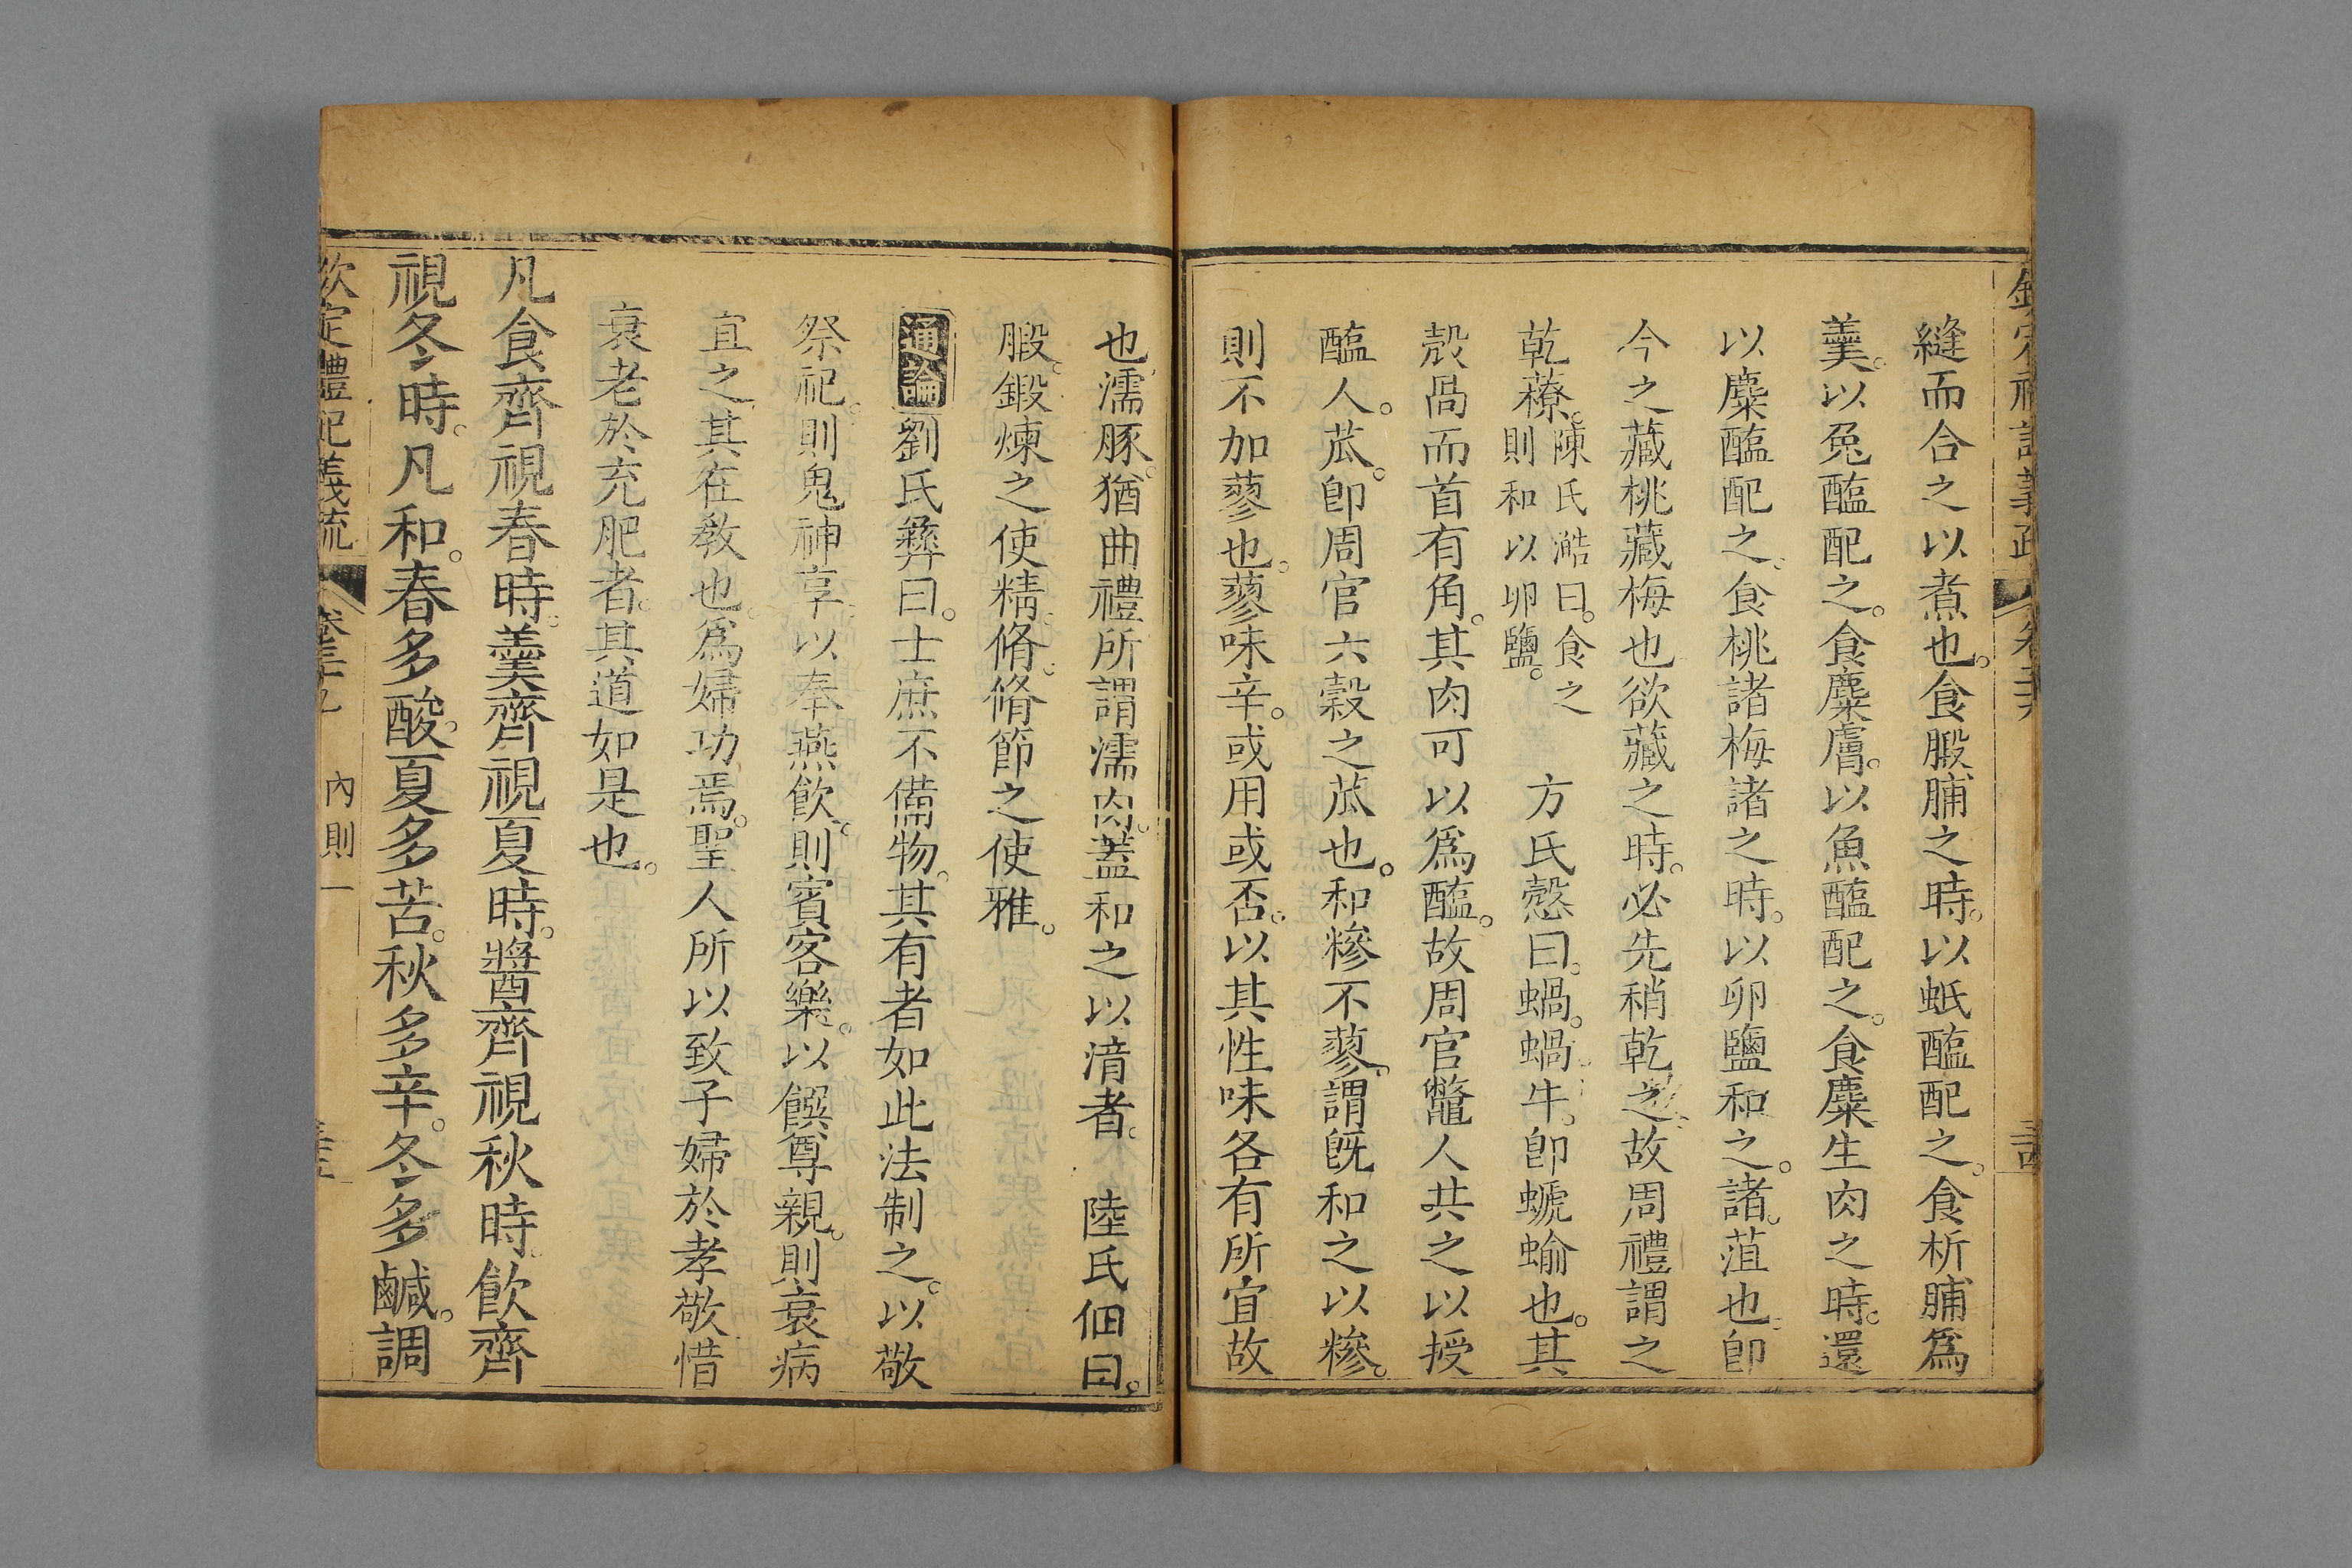 縫而合之以煮也。食腶脯之時。以蚳醢配之。食析脯爲
羹。以兔醢配之。食麋膚。以魚醢配之。食麋生肉之時。還
以麋醢配之。食桃諸梅諸之時。以卵鹽和之。諸。菹也。卽
今之藏桃藏梅也欲藏之時。必先稍乾之。故周禮謂之
乾䕩。陳氏澔曰。食之則和以卵鹽。方氏慤曰。蝸。蝸牛。卽螔蝓也。其
殼咼而首有角。其肉可以爲醢。故周官鼈人共之以授
醢人。苽。卽周官六穀之苽也。和糝不蓼。謂旣和之以糝。
則不加蓼也。蓼味辛。或用或否。以其性味各有所宜故
也。濡豚。猶曲禮所謂濡肉。蓋和之以湆者。 陸氏佃曰。
腶。鍛煉之使精。脩。脩節之使雅。
通論劉氏彝曰。士庶不備物。其有者如此法制之。以敬
祭祀。則鬼神享。以奉燕飲。則賓客樂。以饌尊親。則衰病
宜之。其在敎也。爲婦功焉。聖人所以致子婦於孝敬惜
衰老於充肥者。其道如是也。
凡食齊視春時。羹齊視夏時。醬齊視秋時。飮齊
視冬時。凡和。春多酸。夏多苦。秋多辛。冬多鹹。調
欽定禮記義疏 內則一